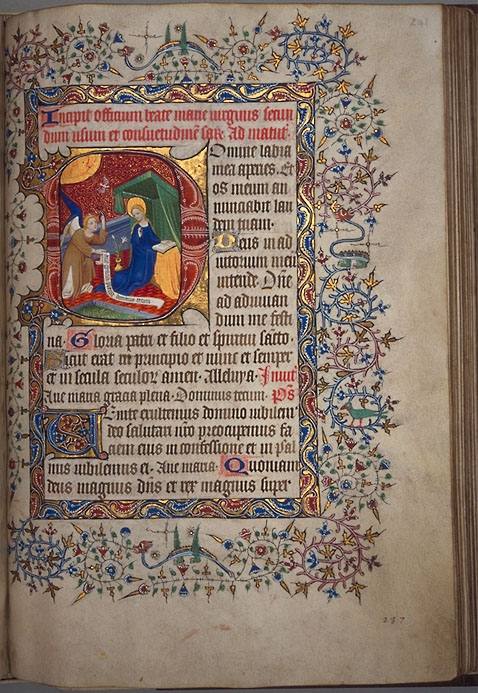 291
Incipit officium beate marie virginis secun
dum usum et consuetudinē sarȝ Ad matut̄
Domine labia
mea aperies. Et
os meum an
nunciabit lau
dem tuam.
Deus in ad
iutorium meū
intende. Dn̄e
ad adiuuan
dum me festi
na. Gloria patri et filio et spiritui sācto.
Sicut erat in principio et nunc et semper
et in secula seculorꝫ amen. Alleluya. Inuit̄
Aue maria gracia plena. Dominus tecum. Ps̄
Uenite exultemus domino iubilem
deo salutari nr̄o preocupemus fa
ciem eius in confessione et in psal
mis iubilemus ei. Aue maria. Quoniam
deus magnus dn̄s et rex magnus super
237